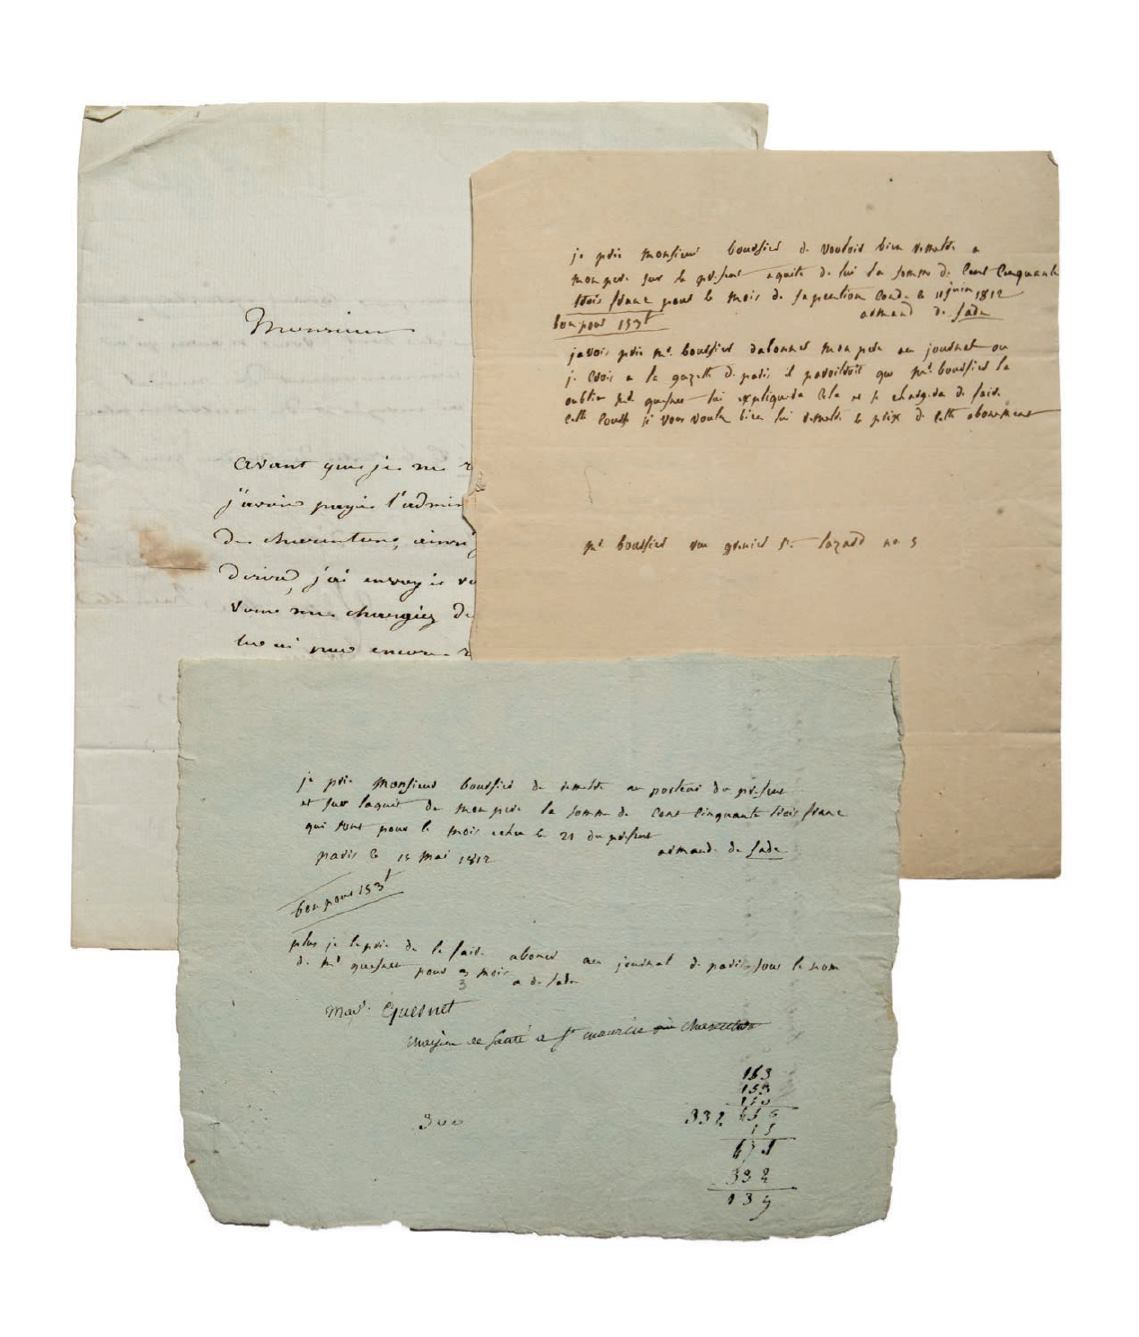 Monsieur
avant que je ne
j'avois payé l'admin
de charenton, ainsi
j'ai envoyé
vous me chargiez de
pas encore
je prie monsieur boursier de vouloir bien remettre a
mon pere sur le présent aquite de lui la somme de cent cinquante
trois franc pour le mois de sa pention le 11 juin 1812
armand de sade
bon pour 153 f
javois prie mr. boursier dabonner mon pere au journal ou
je crois a la gazette de paris il paroitroit que mr. boursier la
oublier md quesnet lui expliquera cela et se chargera de faire
cette si vous voulez bien lui remettre le prix de cette abonement
mr boursier rue grenier st. lazard no. 5
je prie monsieur boursier de remettre au porteur du présent
et sur laquit de mon pere la somme de cent cinquante trois franc
qui sont pour le mois echu le 21 du présent
paris le 15 mai 1812
armand de sade
bon pour 153 f
plus je le prie de le faire aboner au journal de paris sous le nom
de md quesnet pour 3 mois
3
a de sade
mad. Quesnet
maison de santé a st maurice charenton
300
163
153
332
15
332
139